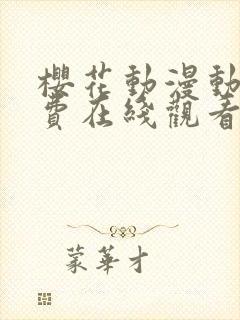 櫻花動漫動
費在綫觀看
蒙華才